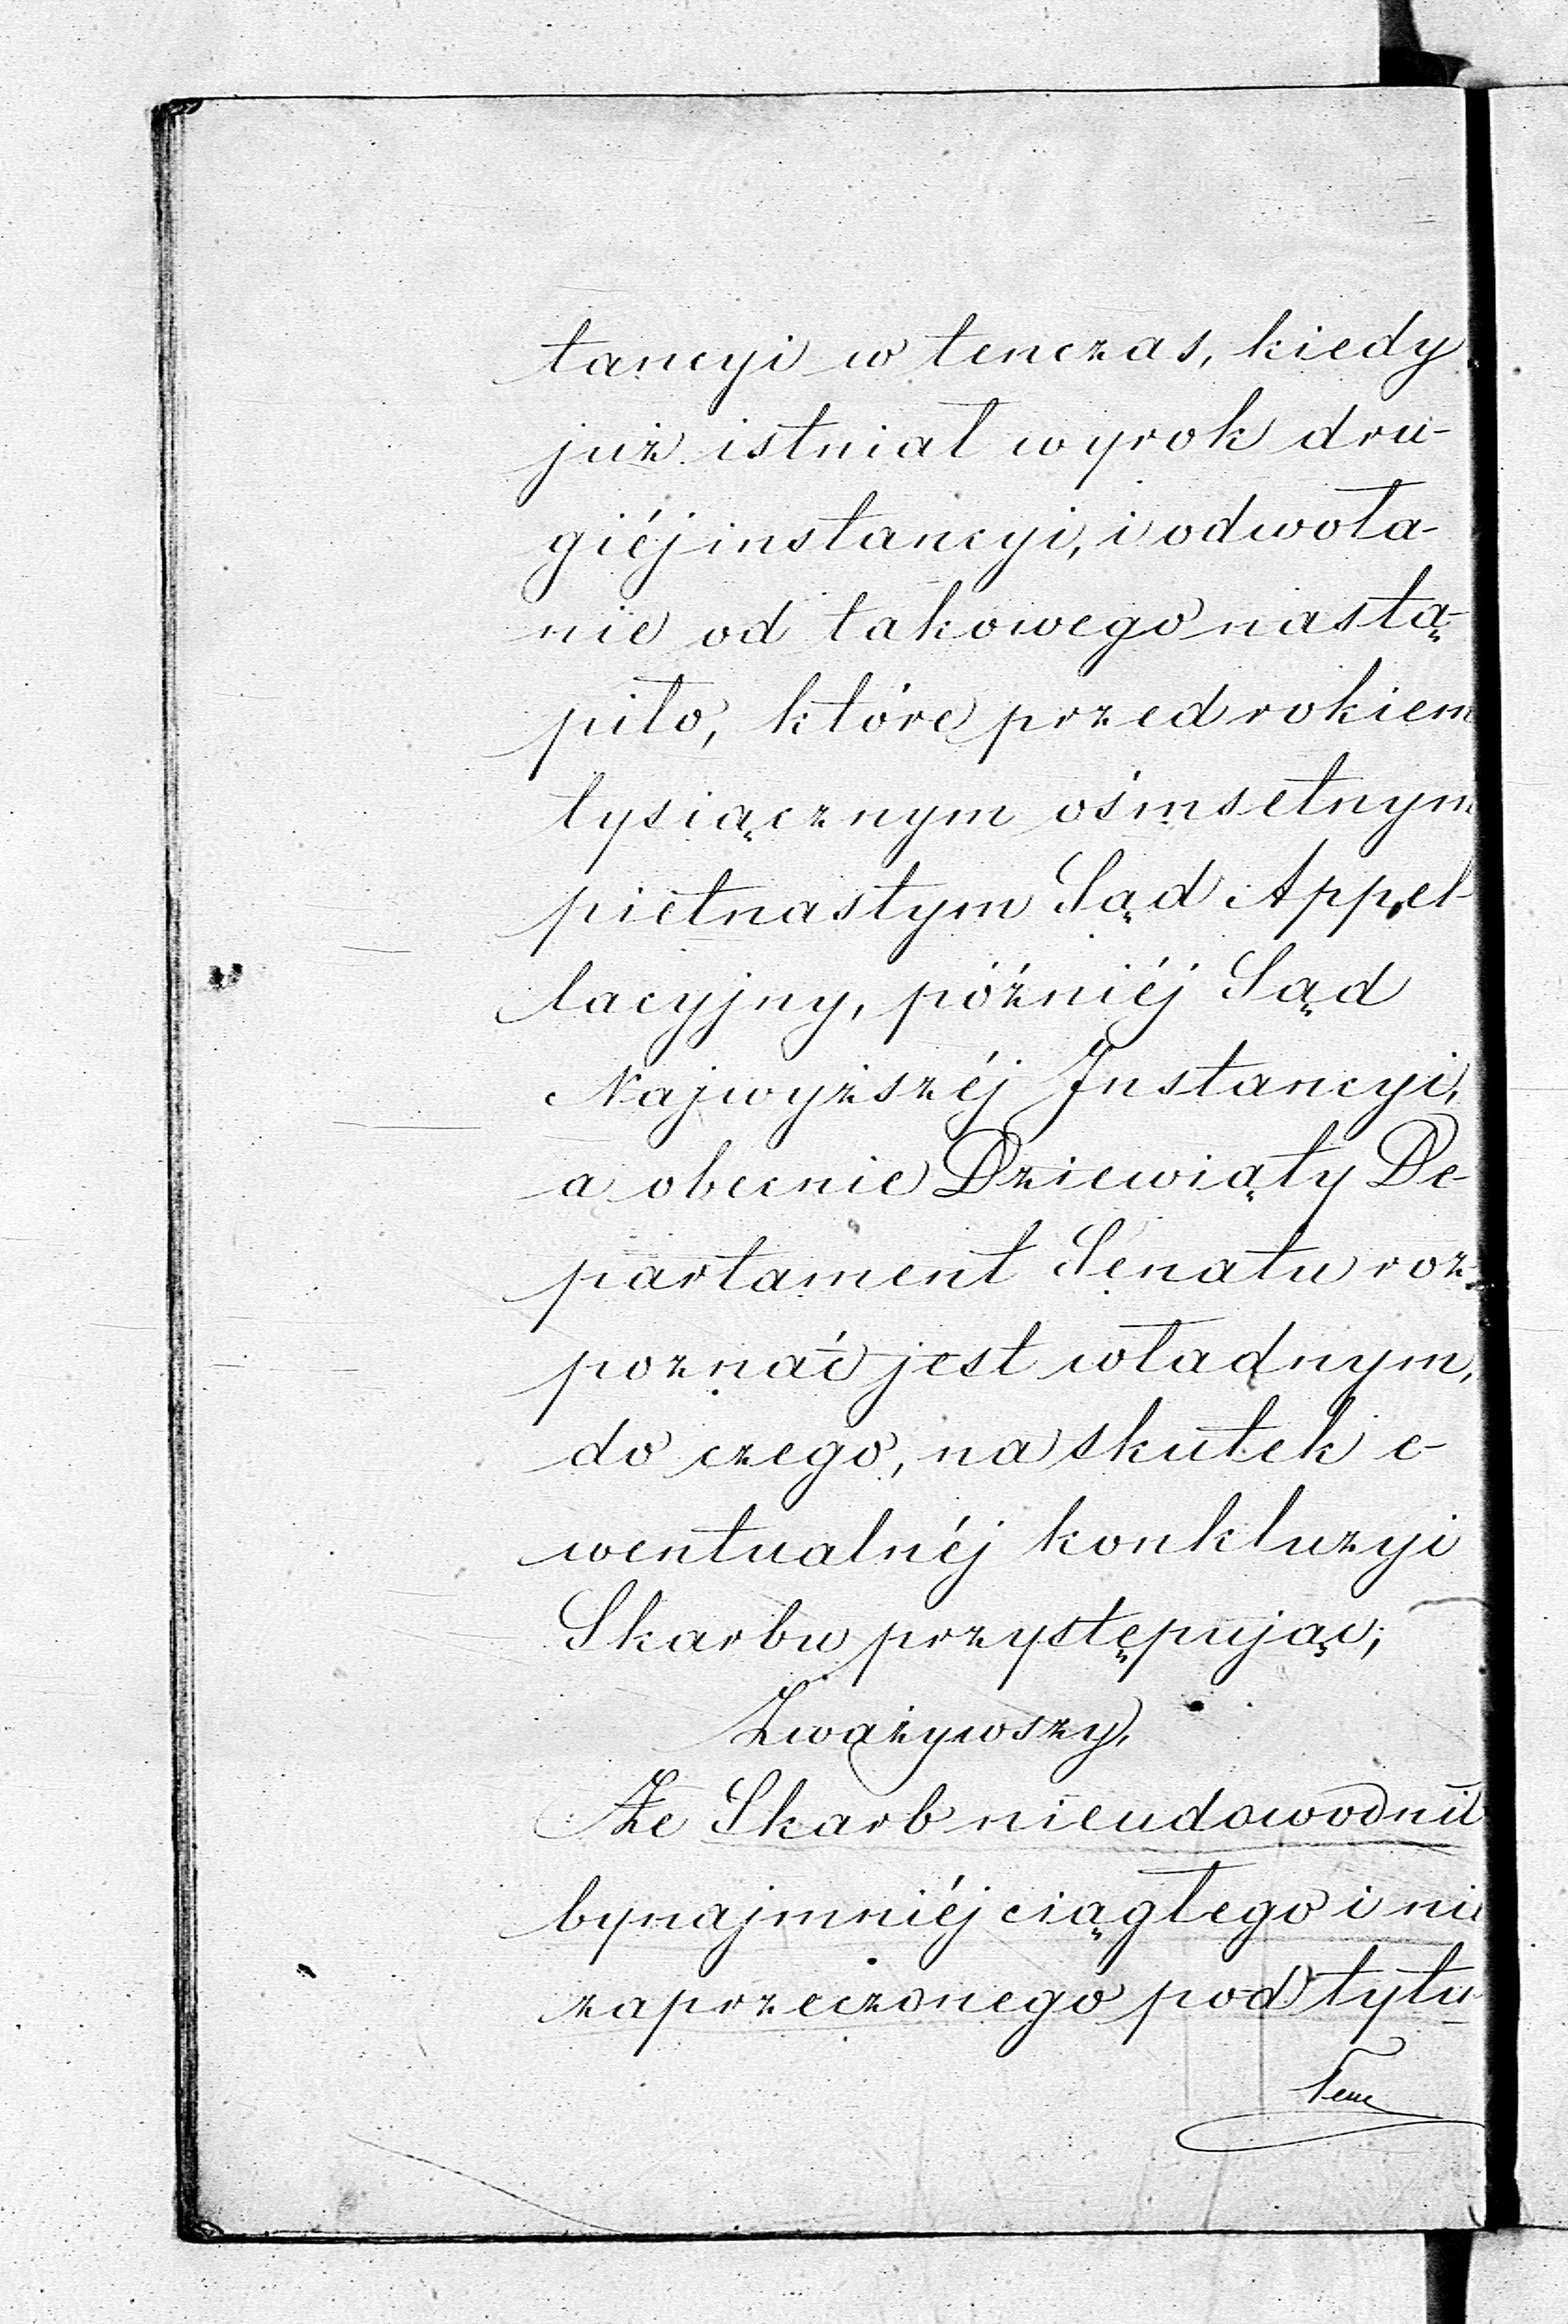 tancyi w tenczas, kiedy
już istniał wyrok dru-
giéj instancyi, i odwoła-
nie od takowego nastą-
piło, które przed rokiem
tysiącznym ośmsetnym
piętnastym Sąd Appel-
lacyjny, późniéj Sąd
Najwyższéj Instancyi,
a obecnie Dziewiąty De-
partament Senatu roz-
poznać jest władnym,
do czego, na skutek e-
wentualnéj konkluzyi
Skarbu przystępując;
Zważywszy,
Że Skarb nieudowodnił
bynajmniéj ciągłego i nie
zaprzeczonego pod tytu-